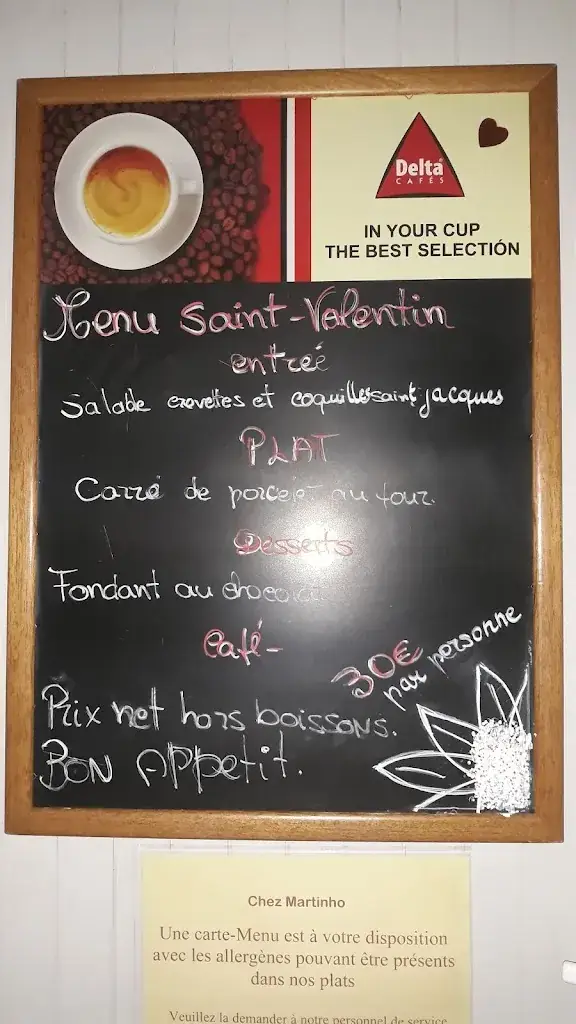 Delta
CAFÉS
IN YOUR CUP
THE BEST SELECTIÓN
Menu Saint-Valentin
entrée
Salade crevettes et coquilles saint jacques
PLAT
Carré de porcelet au four.
Desserts
Fondant au chocolat
Café-
30€
par personne
Prix net hors boissons.
BON APPetit.
Chez Martinho
Une carte-Menu est à votre disposition
avec les allergènes pouvant être présents
dans nos plats
Veuillez la demander à notre personnel de service